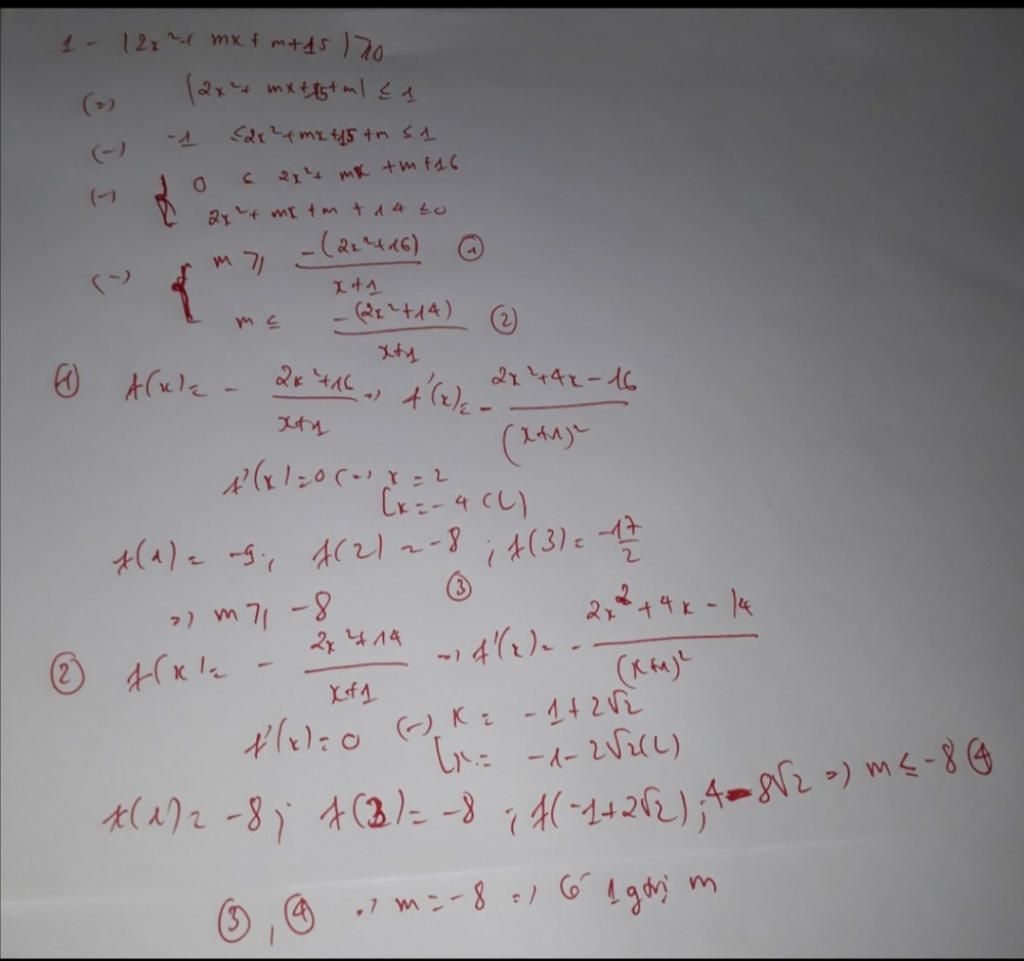 1 - |2x² + mx + m + 15| ≥ 0
(=) |2x² + mx + 15 + m| ≤ 1
(=) -1 ≤ 2x² + mx + 15 + m ≤ 1
(=) { 0 ≤ 2x² + mx + m + 16
2x² + mx + m + 14 ≤ 0
(=) { m ≥ -(2x² + 16) / (x + 1) ①
m ≤ -(2x² + 14) / (x + 1) ②
① f(x) = - (2x² + 16) / (x + 1) => f'(x) = - (2x² + 4x - 16) / (x + 1)²
f'(x) = 0 (=) [ x = 2
x = -4 (L)
f(1) = -9; f(2) = -8; f(3) = -17/2
=> m ≥ -8 ③
② f(x) = - (2x² + 14) / (x + 1) => f'(x) = - (2x² + 4x - 14) / (x + 1)²
f'(x) = 0 (=) [ x = -1 + 2√2
x = -1 - 2√2 (L)
f(1) = -8; f(3) = -8; f(-1 + 2√2) = 4 - 8√2 => m ≤ -8 ④
③, ④ => m = -8 => có 1 gtrị m